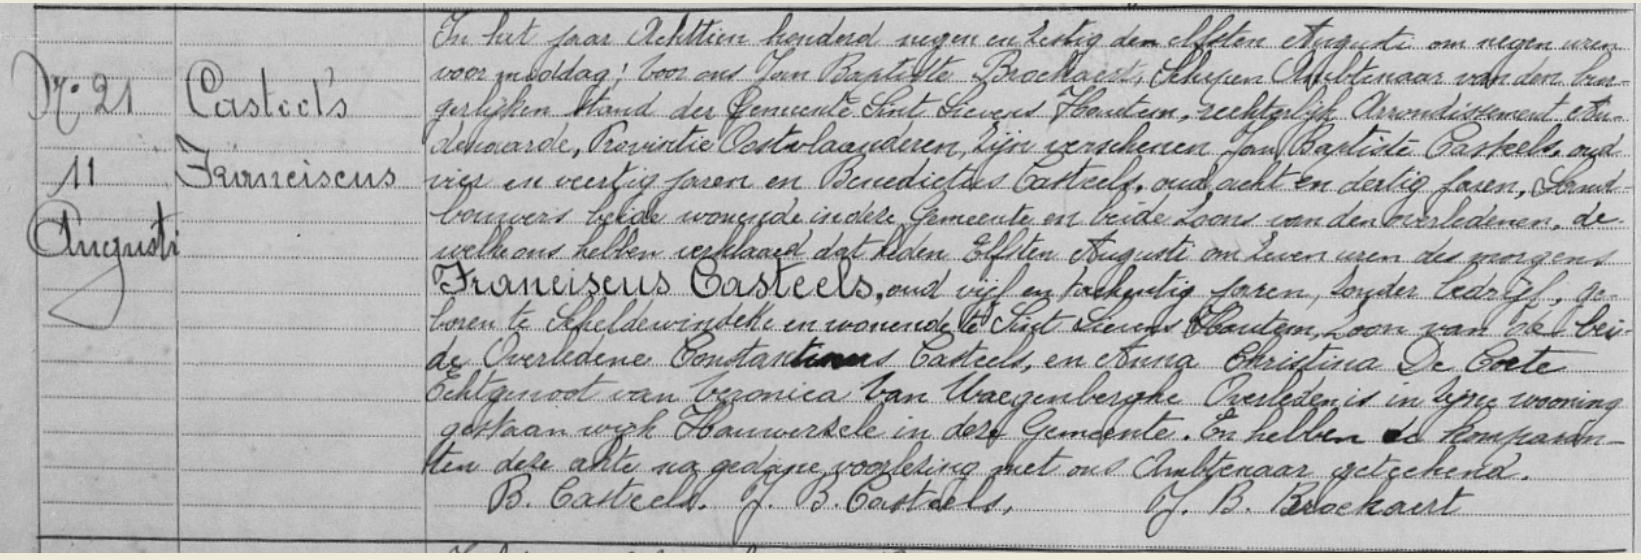 N.º 21
11
Augusti
Casteels
Franciscus
In het jaar Achttien honderd negen en zestig den elfsten Augusti om negen uren
voor middag; voor ons Jan Baptiste Brockaert, Schepen Ambtenaar van den bur-
gerlijken stand der Gemeente Sint Lievens Houtem, rechterlijk Arrondissement Au-
denaarde, Provintie Oostvlaanderen, Zijn verschenen Jan Baptiste Casteels, oud
vier en veertig jaren en Benedictus Casteels, oud acht en dertig jaren, Land-
bouwers beide wonende in deze Gemeente en beide Zoons van den overledenen, de
welke ons hebben verklaard dat heden Elfsten Augusti om zeven uren des morgens
Franciscus Casteels, oud vijf en tachentig jaren, zonder bedrijf, ge-
boren te Scheldewindeke en wonende te Sint Lievens Houtem, Zoon van de bei-
de Overledene Constantinus Casteels, en Anna Christina De Coete
Echtgenoot van Veronica Van Waegenberghe Overleden is in zijne wooning
gestaan wijk Hauwersele in deze Gemeente. En hebben de komparan-
ten deze akte na gedane voorlezing met ons Ambtenaar geteekend.
B. Casteels. J. B. Casteels, J. B. Brockaert